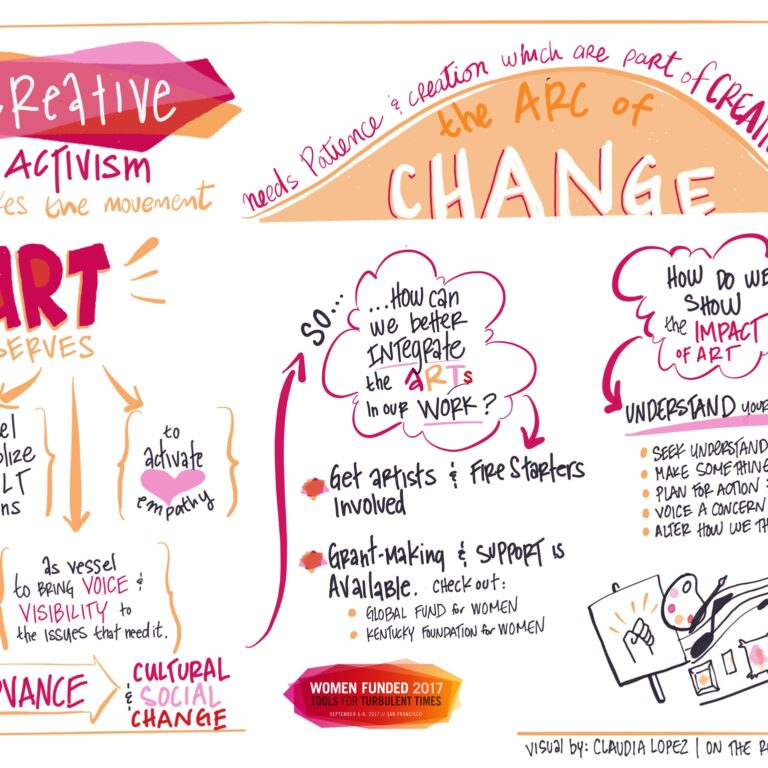 CReative
ACTIVISM
the movement
needs Patience & creation which are part of
the ARC of
CHANGE
ART
SERVES
to
activate
empathy
as vessel
to BRING VOICE &
VISIBILITY to
the issues that need it.
CULTURAL
& SOCIAL
CHANGE
SO...
...How can
we better
INtegRate
the aRTs
In our WORK?
Get artists & Fire Starters
Involved
Grant-Making & support is
Available. Check out:
GLOBAL FUND for WOMEN
KENTUCKY FOUNDATION for WOMEN
WOMEN FUNDED 2017
TOOLS FOR TURBULENT TIMES
SEPTEMBER 6-8, 2017 // SAN FRANCISCO
HOW DO WE
SHOW
the IMPACT
OF ART
UNDERSTAND
SEEK
MAKE SOMETHING
PLAN FOR ACTION
VOICE A CONCERN
ALTER HOW WE
VISUAL by: CLAUDIA LOPEZ | ON THE